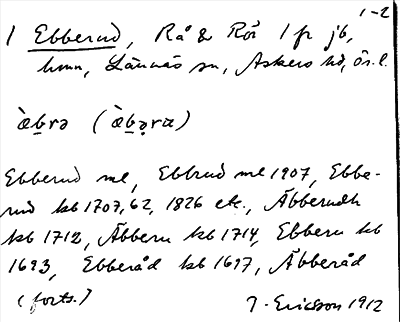 1-2
1 Ebberud, Rå & Rör 1 fr jb,
hmn, Lännäs sn, Askers hd, Ör. l.
æ̀b̠rə (æ̀b̠ə̣ra)
Ebberud ml, Ebbrud ml 1907, Ebbe-
rud kb 1707, 62, 1826 etc., Äbberudh
kb 1712, Äbberu kb 1714, Ebberu kb
1693, Ebberåd kb 1697, Äbberåd
(forts.) J. Ericsson 1912